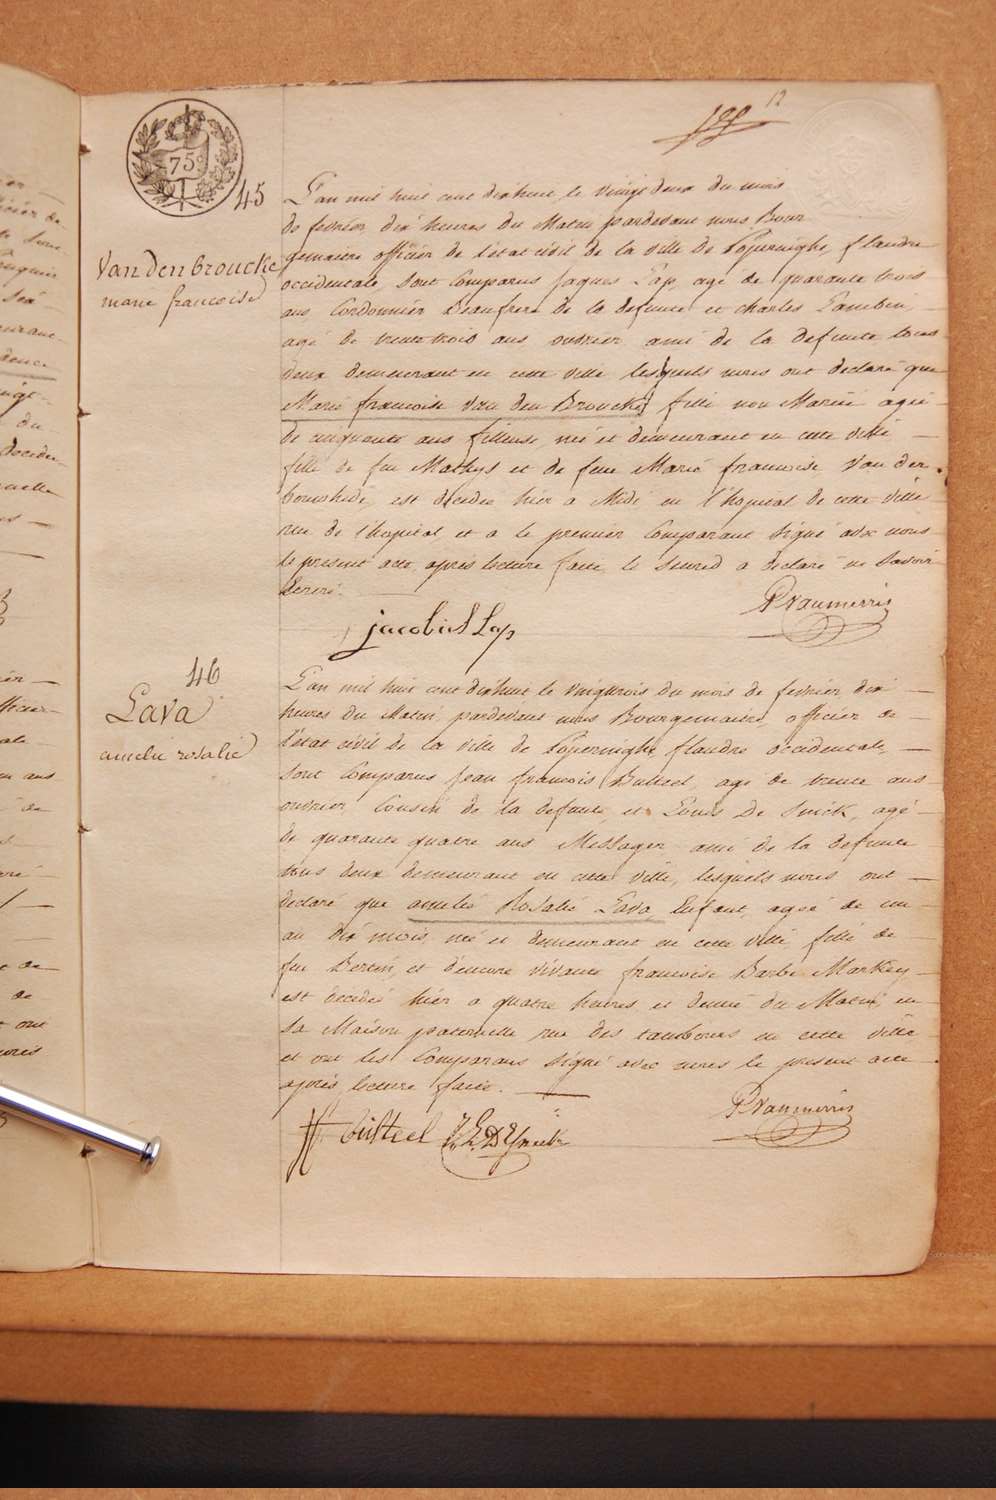 12
75 c
45
Van den broucke
marie francoise
L'an mil huit cent dixhuit le vingt deux du mois
de fevrier dix heures du Matin pardevant nous Bour
gemaitre officier de l'état civil de la ville de Poperinghe, flandre
occidentale, sont Comparus Jaques Lap, agé de quarante trois
ans Cordonnier Beaufrere de la defunte et charles
agé de trente trois ans ouvrier ami de la defunte tous
deux demeurant en cette ville lesquels nous ont declaré que
Marie francoise Van den Broucke fille non Mariée agée
de cinquante ans fileuse, née et demeurant en cette ville —
fille de feu Mathys et de feue Marie francoise Van der
est decedée hier a Midi en l'hopital de cette ville
rue de l'hopital et a le premier Comparant signé avec nous
le present acte, apres lecture faite le second a declaré ne savoir
Ecrire.
jacobus Lap
PVanmerris
46
Lava
amelie rosalie
L'an mil huit cent dixhuit le vingttrois du mois de fevrier dix —
heures du Matin, pardevant nous Bourgemaitre, officier de —
l'état civil de la ville de Poperinghe, flandre occidentale, —
sont Comparus Jean francois Bulteel, agé de trente ans
ouvrier, Cousin de la defunte, et Louis De Snick, agé —
de quarante quatre ans Messager ami de la defunte
tous deux demeurant en cette ville, lesquels nous ont —
declaré que amelie Rosalie Lava, Enfant, agée de un
an dix mois, née et demeurant en cette ville, fille de
feu Bertin, et d'encore vivante francoise Barbe Markey —
est decedée hier a quatre heures et demie du Matin, en
sa Maison paternelle rue des tambours en cette ville
et ont les Comparans signé avec nous le present acte
après lecture faite. —
bulteel
PVanmerris